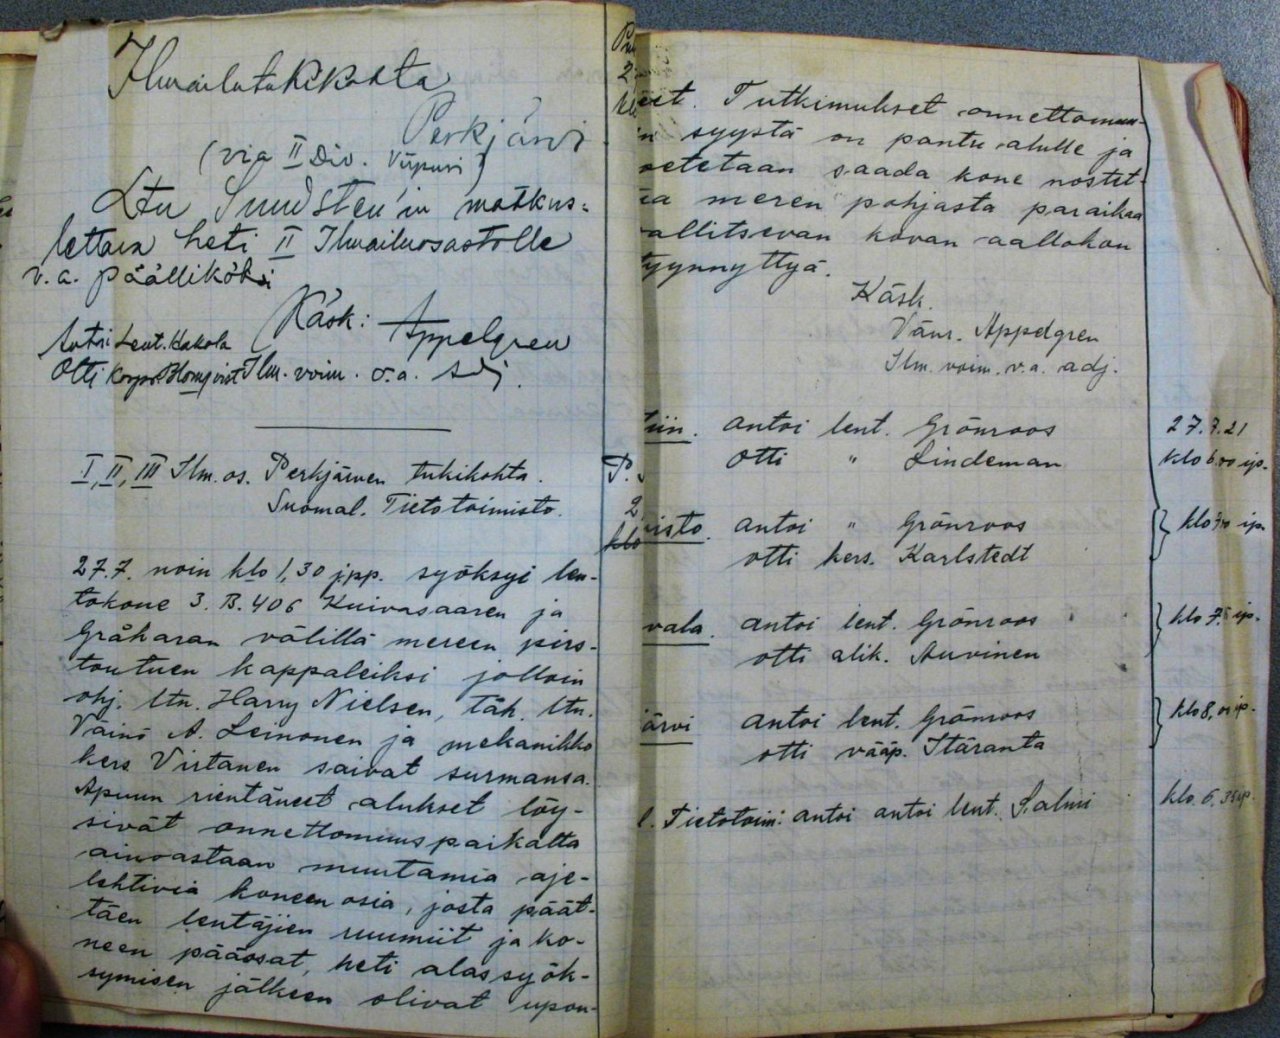 Ilmailutukikohta
Perkjärvi
(via II Div. Viipuri)
Ltn Sundsten'in matkus-
tettava heti II Ilmailuosastolle
v.a. päälliköksi
Käsk: Appelgren
Antoi Leut. Kakola
Otti korpr. Blomqvist Ilm. voim. v.a. adj.
I, II, III Ilm. os. Perkjärven tukikohta.
Suomal. Tietotoimisto.
27.7. noin klo 1,30 jpp. syöksyi len-
tokone 3.B.406 Kuivasaaren ja
Gråharan välillä mereen pirs-
toutuen kappaleiksi jolloin
ohj. ltn. Harry Nielsen, täh. ltn.
Väinö A. Leinonen ja mekanikko
kers Virtanen saivat surmansa.
Apuun rientäneet alukset löy-
sivät onnettomuuspaikalta
ainoastaan muutamia aje-
lehtivia koneen osia, josta päät-
täen lentäjien ruumiit ja ko-
neen pääosat, heti alassyök-
symisen jälkeen olivat upon-
eet. Tutkimukset onnettomuu-
n syystä on pantu alulle ja
oetetaan saada kone nostet-
ua meren pohjasta paraikaa
allitsevan kovan aallokon
tyynnyttyä.
Käsk.
Vänr. Appelgren
Ilm. voim. v.a. adj.
tiin. antoi lent. Grönroos 27.7.21
otti " Lindeman klo 6.00 ip.
P.
2
klo
visto. antoi " Grönroos klo 7.00 ip.
otti kers. Karlstedt
vala. antoi lent. Grönroos klo 7. ip.
otti alik. Auvinen
ärvi antoi lent. Grönroos klo 8, ip.
otti vääp. Itäranta
l. Tietotoim: antoi antoi lent. Salmi klo. 6.35 ip.